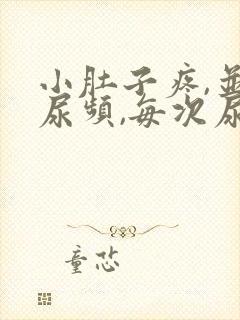 小肚子疼,並
尿頻,每次尿
童芯